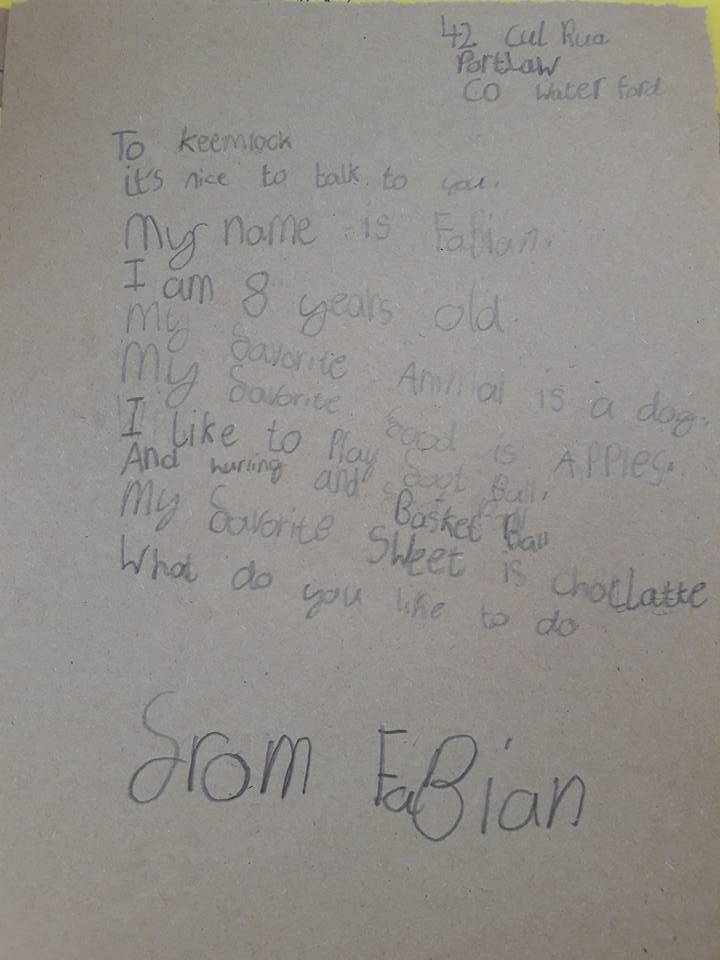 42 Cul Rua
Portlaw
Co Waterford
To keemlock
it's nice to talk to you.
My name is FaBian.
I am 8 years old.
My favorite Animal is a dog.
My favorite food is APPles.
I like to Play foot Ball.
And hurling and Basket Ball
My favorite Sweet is choclatte
What do you like to do
from FaBian